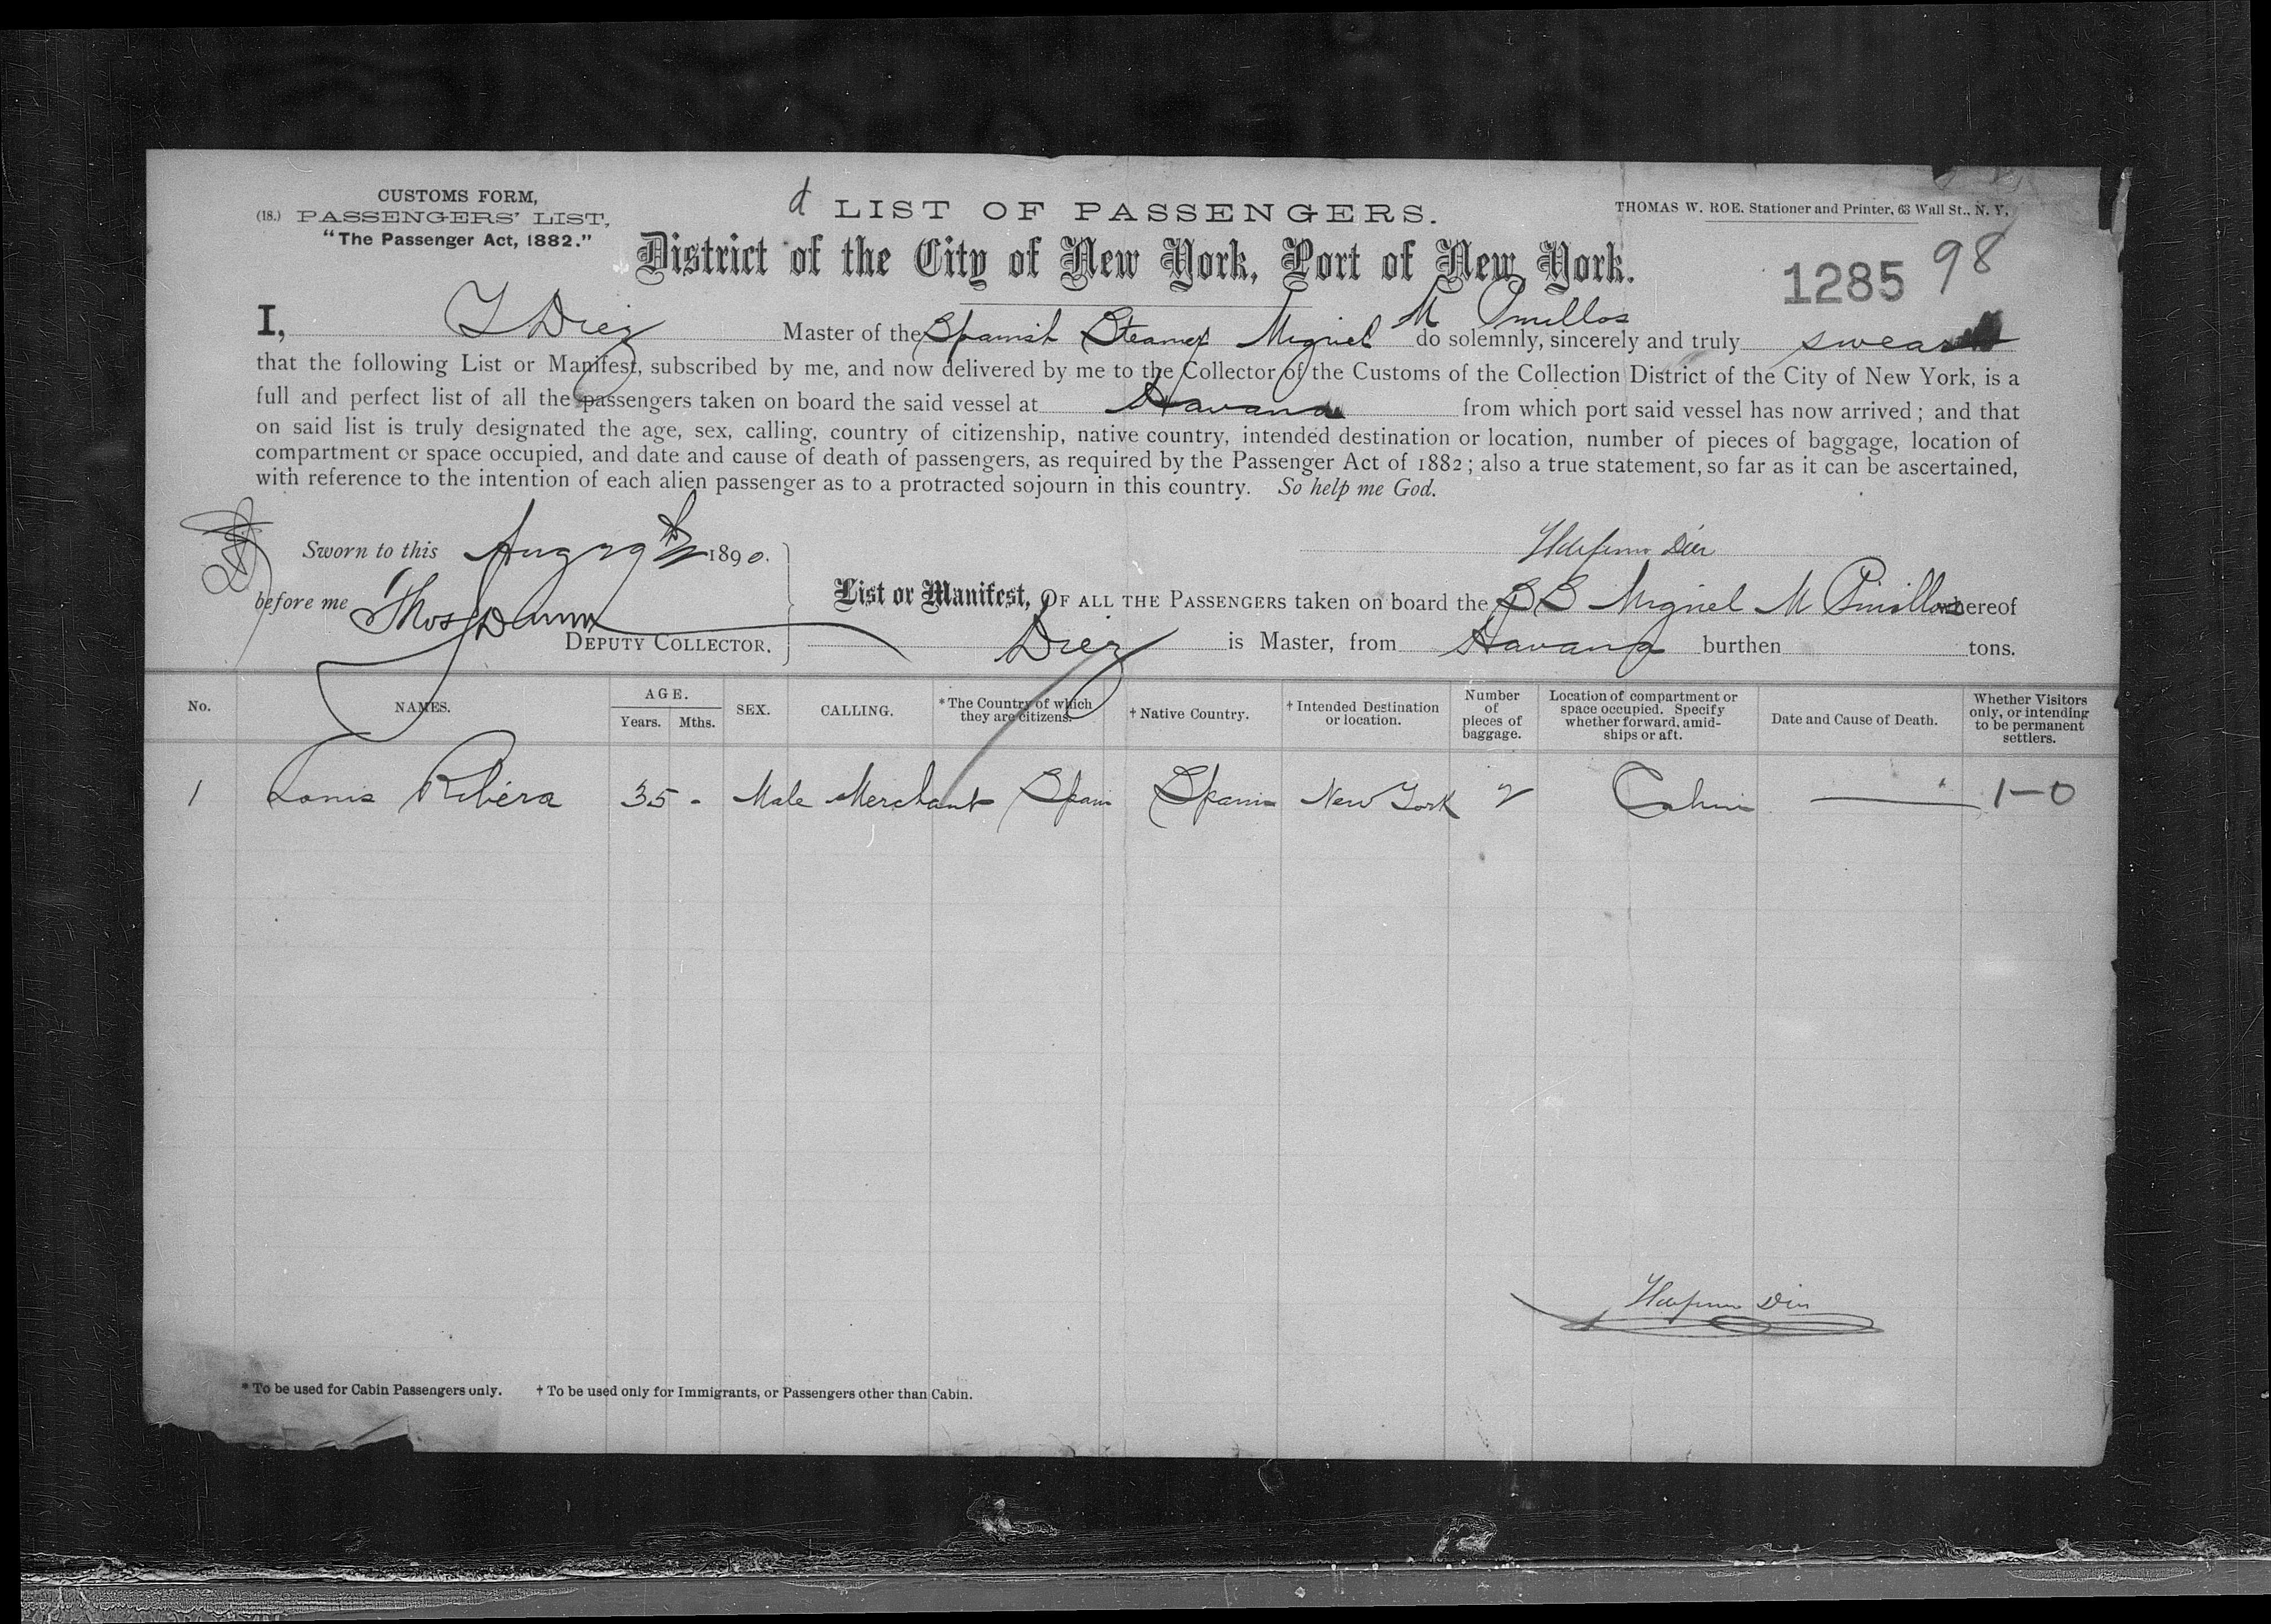 CUSTOMS FORM,
(18.) PASSENGERS' LIST,
"The Passenger Act, 1882."
d LIST OF PASSENGERS.
THOMAS W. ROE. Stationer and Printer, 63 Wall St., N. Y.
District of the City of New York, Port of New York.
1285 98
I, I Diez Master of the Spanish Steamer Miguel M Pinillos do solemnly, sincerely and truly swear
that the following List or Manifest, subscribed by me, and now delivered by me to the Collector of the Customs of the Collection District of the City of New York, is a
full and perfect list of all the passengers taken on board the said vessel at Havana from which port said vessel has now arrived; and that
on said list is truly designated the age, sex, calling, country of citizenship, native country, intended destination or location, number of pieces of baggage, location of
compartment or space occupied, and date and cause of death of passengers, as required by the Passenger Act of 1882; also a true statement, so far as it can be ascertained,
with reference to the intention of each alien passenger as to a protracted sojourn in this country. So help me God.
Sworn to this Aug 29th 1890.
Ildefonso Diez
before me Thos Dunn
DEPUTY COLLECTOR.
List or Manifest, OF ALL THE PASSENGERS taken on board the SS Miguel M Pinillos whereof
Diez is Master, from Havana burthen tons.
No. NAMES. AGE. Years. Mths. SEX. CALLING. *The Country of which they are citizens. †Native Country. †Intended Destination or location. Number of pieces of baggage. Location of compartment or space occupied. Specify whether forward, amid-ships or aft. Date and Cause of Death. Whether Visitors only, or intending to be permanent settlers.
1 Louis Ribera 35 - Male Merchant Spain Spain New York 2 Cabin — 1-0
Ildefonso Diez
*To be used for Cabin Passengers only. †To be used only for Immigrants, or Passengers other than Cabin.